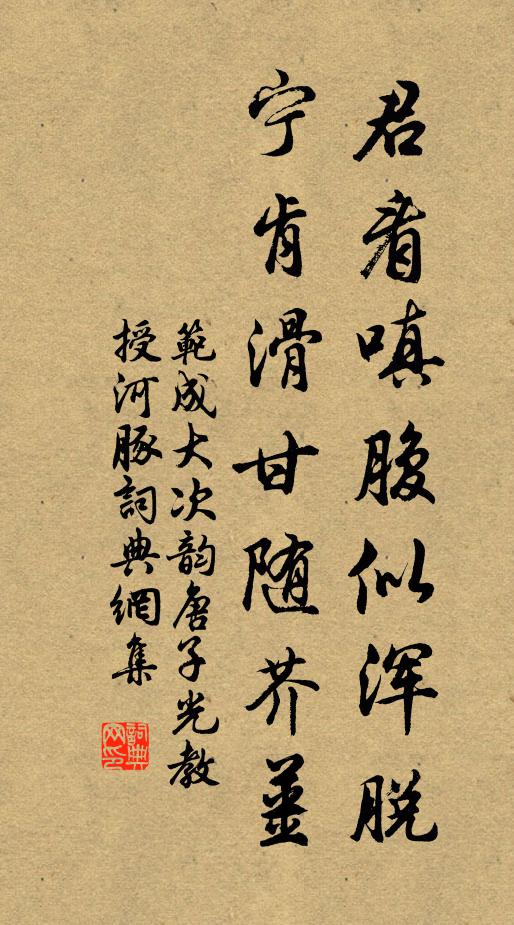 君看嗔腹似浑脱
宁肯滑甘随芥姜
範成大次韵唐子光教
授河豚詞典網集
詞典
网印